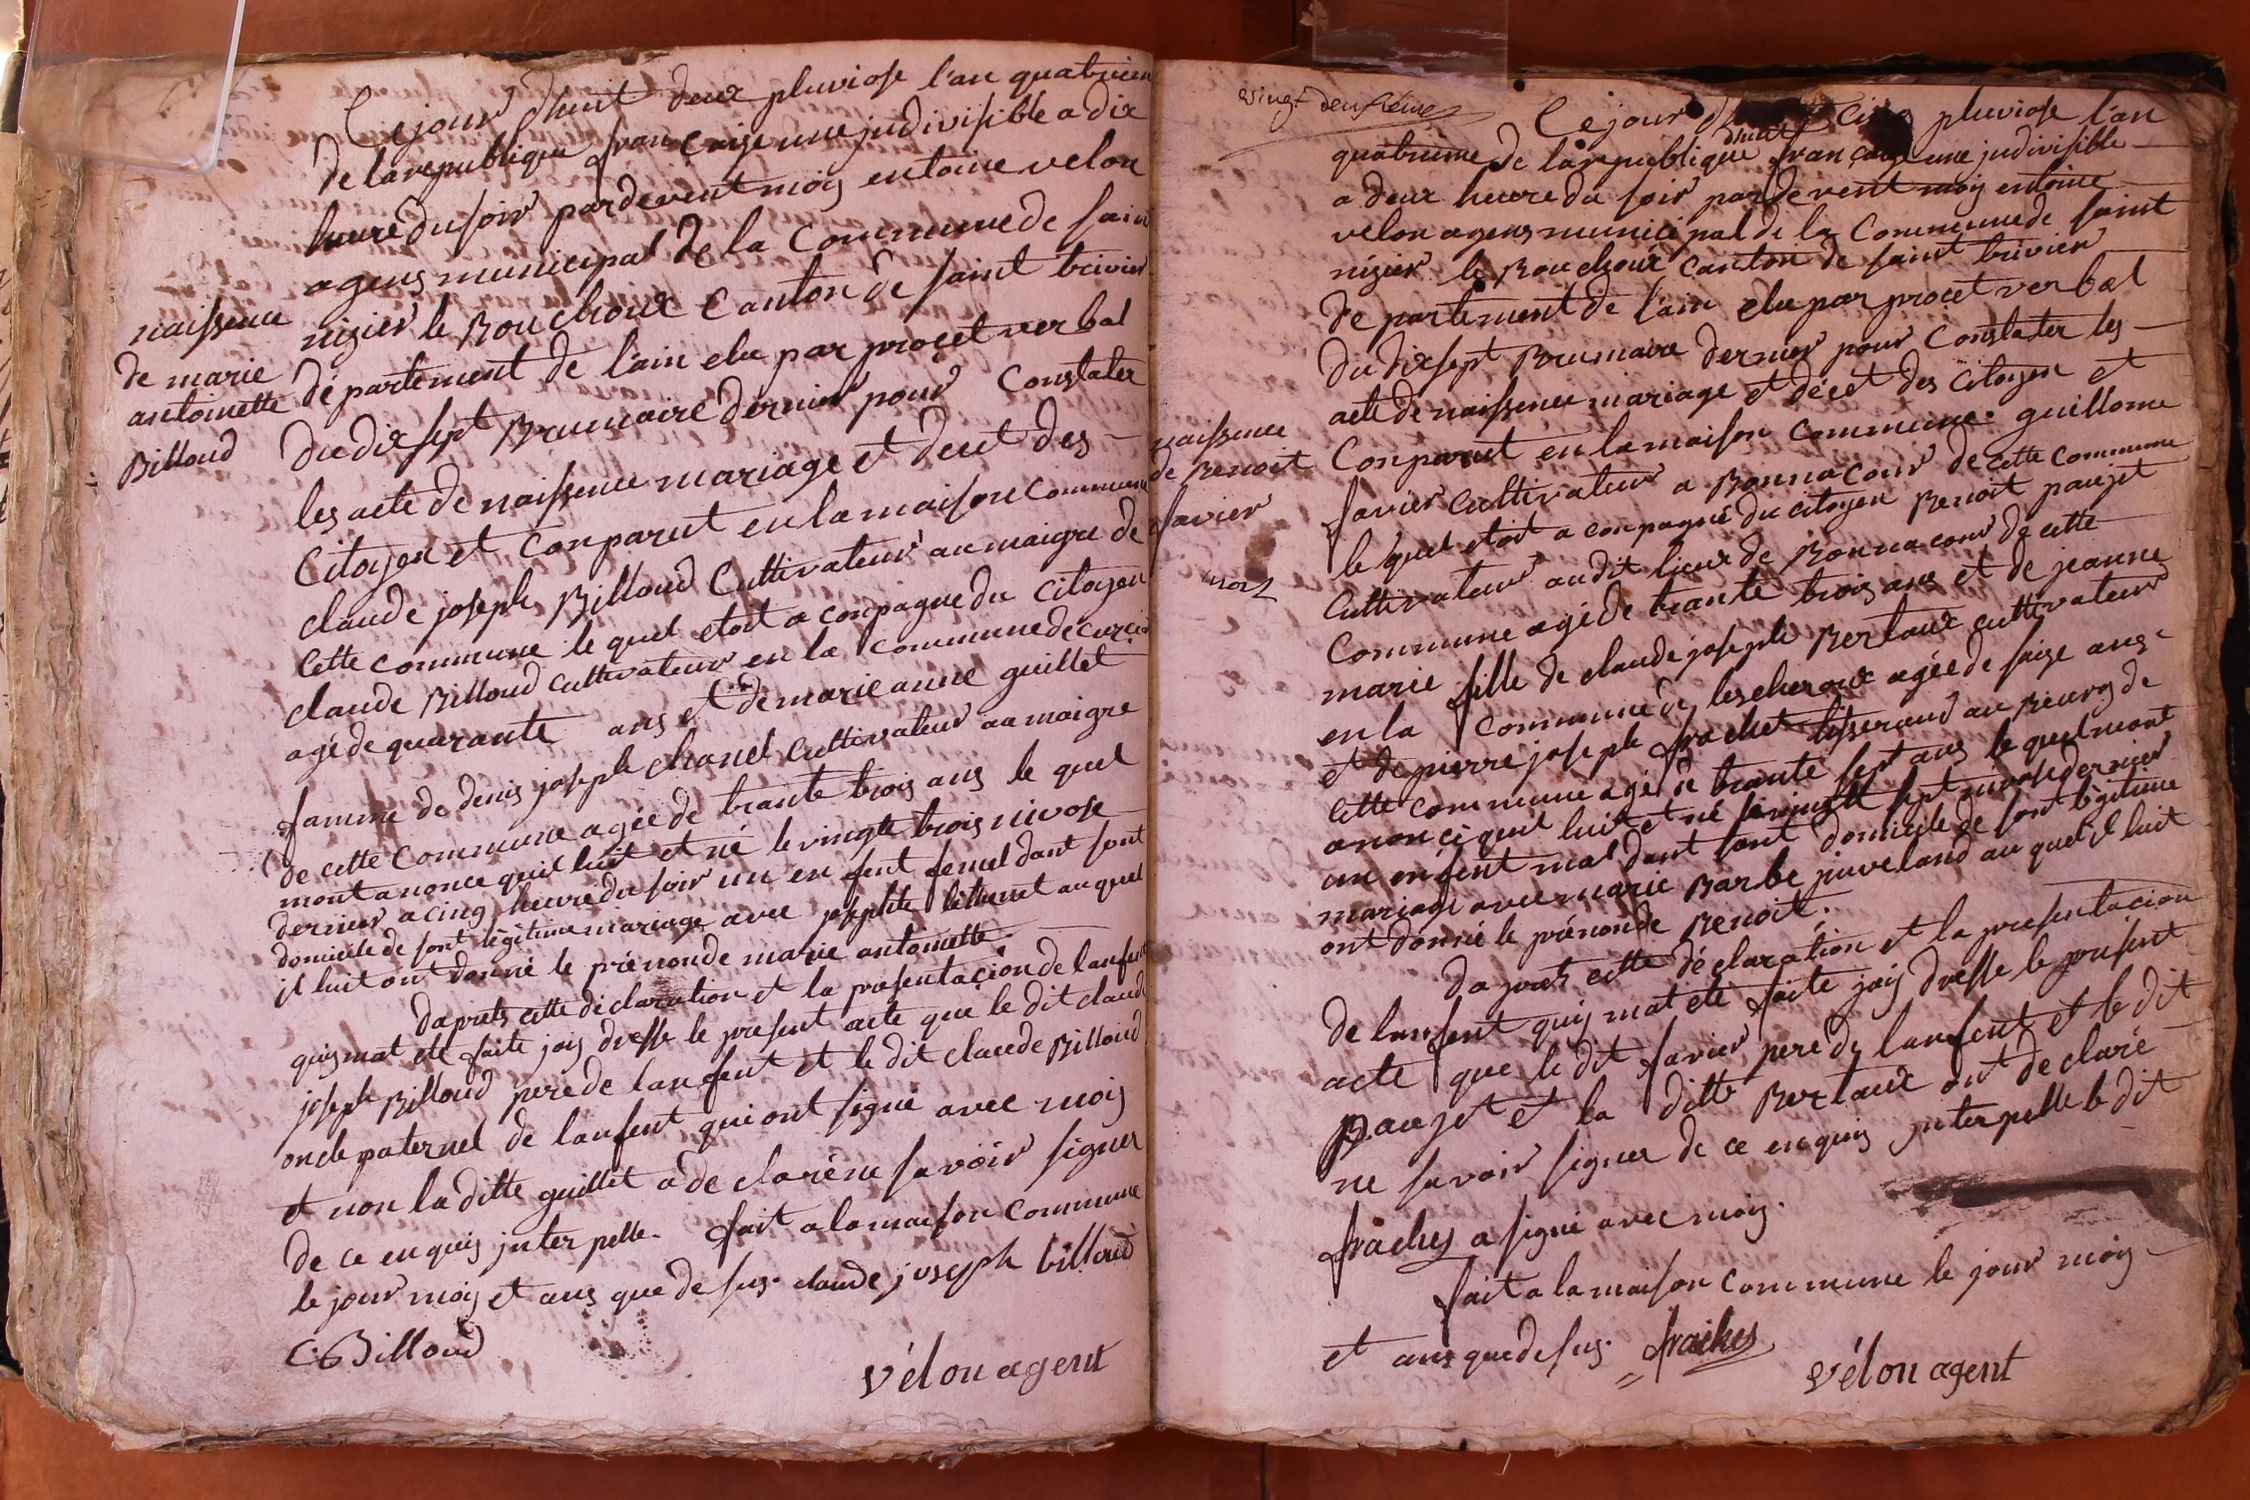 Ce jour d'huit deux pluviose l'an quatrieme
de la republique francaise une judivisible a dix
heure du soir pardevent mois entoine velon
agens municipal de la commune de sain
nizier le Bouchoux canton de saint trivier
departement de l'ain elu par procet verbal
du dix sept Brumaire dernier pour constater
les acte de naissence mariage et decet des
citoyen et conparut en la maison commune
claude joseph Billoud cultivateur au maigre de
cette commune le quel etoit a conpagne du citoyen
claude Billoud cultivateur en la commune de curcia
agé de quarante ans et de marie anne guillet
famme de denis joseph chanel cultivateur au maigre
de cette commune agée de trante trois ans le quel
mont anonce quil luit et né le vingte trois nivose
dernier a cinq heure du soir un enfent femel dant sont
domicile de sont légitime mariage avec josephte auquel
il luit ont donné le prénon de marie antoinette.
daprets cette déclaration et la presentacion de lanfent
quis mat eté faite jois dresse le present acte que le dit claude
joseph Billoud pere de lanfent et le dit claude Billoud
oncle paternel de lanfent qui ont signé avec mois
et non la ditte guillet a de claré ne savoir signer
de ce enquis jnter pelle. fait a la maison commune
le jour mois et ans que de sus. claude joseph billoud
C. Billoud
vélon agent
naissence
de marie
antoinette
Billoud
vingt deuxieme
Ce jour d'huit cinq pluviose l'an
quatrieme de la republique francaise une judivisible
a deux heure du soir par devent mois entoine
velon agens municipal de la commune de saint
nizier le Bouchoux canton de saint trivier
departement de l'ain elu par procet verbal
du dix sept Brumaire dernier pour constater les
acte de naissence mariage et décet des citoyen et
conparut en la maison commune. guillome
favier cultivateur a Bonnacour de cette commune
le quel etoit a conpagné du citoyen Benoit paujet
cultivateur audit lieux de Bonnacour de cette
commune agé de trante trois ans et de jeanne
marie fille de claude joseph Bertaux cultivateur
en la commune de lescheroux agée de saize ans
et de pierre joseph frachet tisserand au Bourg de
cette commune agé de trante sept ans le quel mont
anoncé quil luit et né le vingte sept nivose dernier
un enfent mal dant sont domicile de sont légitime
mariage avec marie Barbe juveland au quel il luit
ont donné le prénon de Benoit.
daprets cette déclaration et la presentacion
de lanfent quis mat eté faite jois dresse le present
acte que le dit favier pere de lanfent et le dit
paujet et la ditte Bertaux ont declaré
ne savoir signer de ce enquis jnterpelle le dit
fraches a signé avec mois.
fait a la maison commune le jour mois
et ans que de sus. fraches
vélon agent
naissence
de Benoit
favier
mort